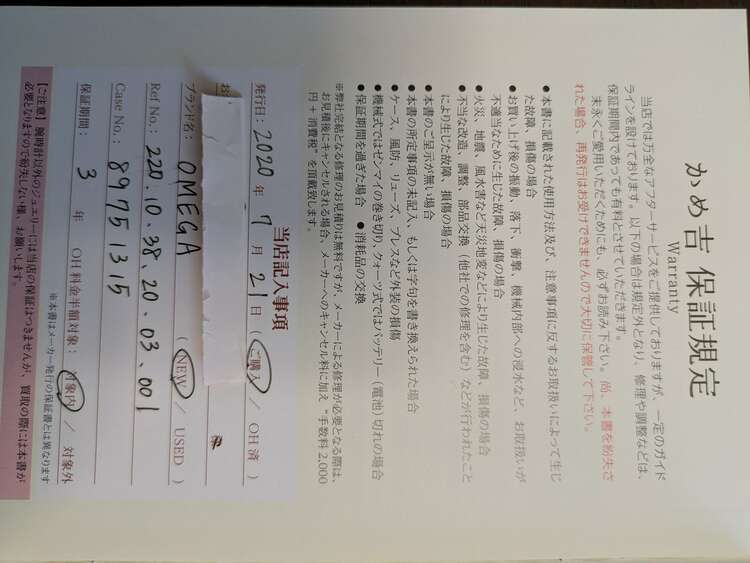 かめ吉 保証規定
Warranty
当店では万全なアフターサービスをご提供しておりますが、一定のガイド
ラインを設けております。以下の場合は規定外となり、修理や調整などは、
保証期間内であっても有料とさせていただきます。
末永くご愛用いただくためにも、必ずお読み下さい。尚、本書を紛失さ
れた場合、再発行はお受けできませんので大切に保管して下さい。
●本書に記載された使用方法及び、注意事項に反するお取扱いによって生じ
た故障、損傷の場合
●お買い上げ後の振動、落下、衝撃、機械内部への浸水など、お取扱いが
不適当なために生じた故障、損傷の場合
●火災、地震、風水害など天災地変などにより生じた故障、損傷の場合
●不当な改造、調整、部品交換(他社での修理を含む)などが行われたこと
により生じた故障、損傷の場合
●本書のご呈示が無い場合
●本書の所定事項の未記入、もしくは字句を書き換えられた場合
●ケース、風防、リューズ、ブレスなど外装の損傷
●機械式ではゼンマイの巻き切り、クォーツ式ではバッテリー(電池)切れの場合
●保証期間を過ぎた場合 ●消耗品の交換
※弊社完結となる修理のお見積りは無料ですが、メーカーによる修理が必要となる際は、
お見積後にキャンセルされる場合、メーカーへのキャンセル料に加え"手数料2,000
円+消費税"を頂戴致します。
当店記入事項
発行日: 2020 年 7 月 21 日 (ご購入 / OH済)
ブランド名: OMEGA (NEW / USED)
Ref No.: 220.10.38.20.03.001
Case No.: 89751315
保証期間: 3 年 OH料金半額対象: 対象内 / 対象外
※本書はメーカー発行の保証書とは異なります
【ご注意】腕時計以外のジュエリーには当店の保証はつきませんが、買取の際には本書が
必要となりますので紛失しない様、お願いします。